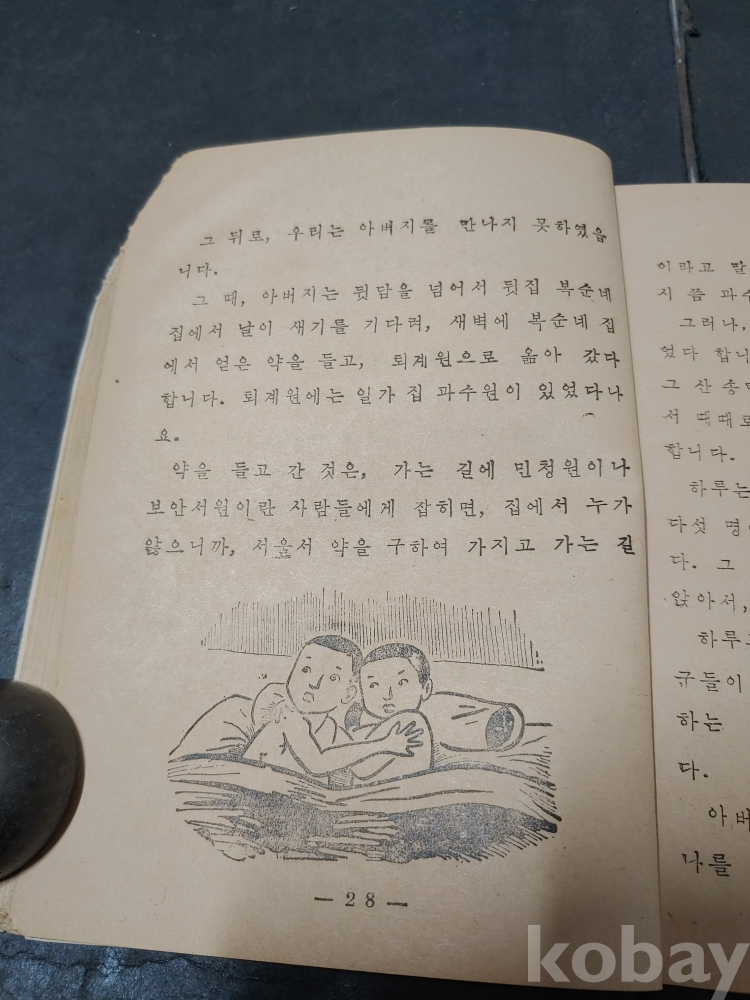 그 뒤로, 우리는 아버지를 만나지 못하였읍
니다.
그 때, 아버지는 뒷담을 넘어서 뒷집 복순네
집에서 날이 새기를 기다려, 새벽에 복순네 집
에서 얻은 약을 들고, 퇴계원으로 옮아 갔다
합니다. 퇴계원에는 일가 집 과수원이 있었다나
요.
약을 들고 간 것은, 가는 길에 민청원이나
보안서원이란 사람들에게 잡히면, 집에서 누가
앓으니까, 서울서 약을 구하여 가지고 가는 길
— 28 —
이라고 말
시 쯤 과수
그러나,
었다 합니
그 산 송
서 때때로
합니다.
하루는
다섯 명
다. 그
앉아서,
하루
균들이
하는
다.
아버
나를
kobay